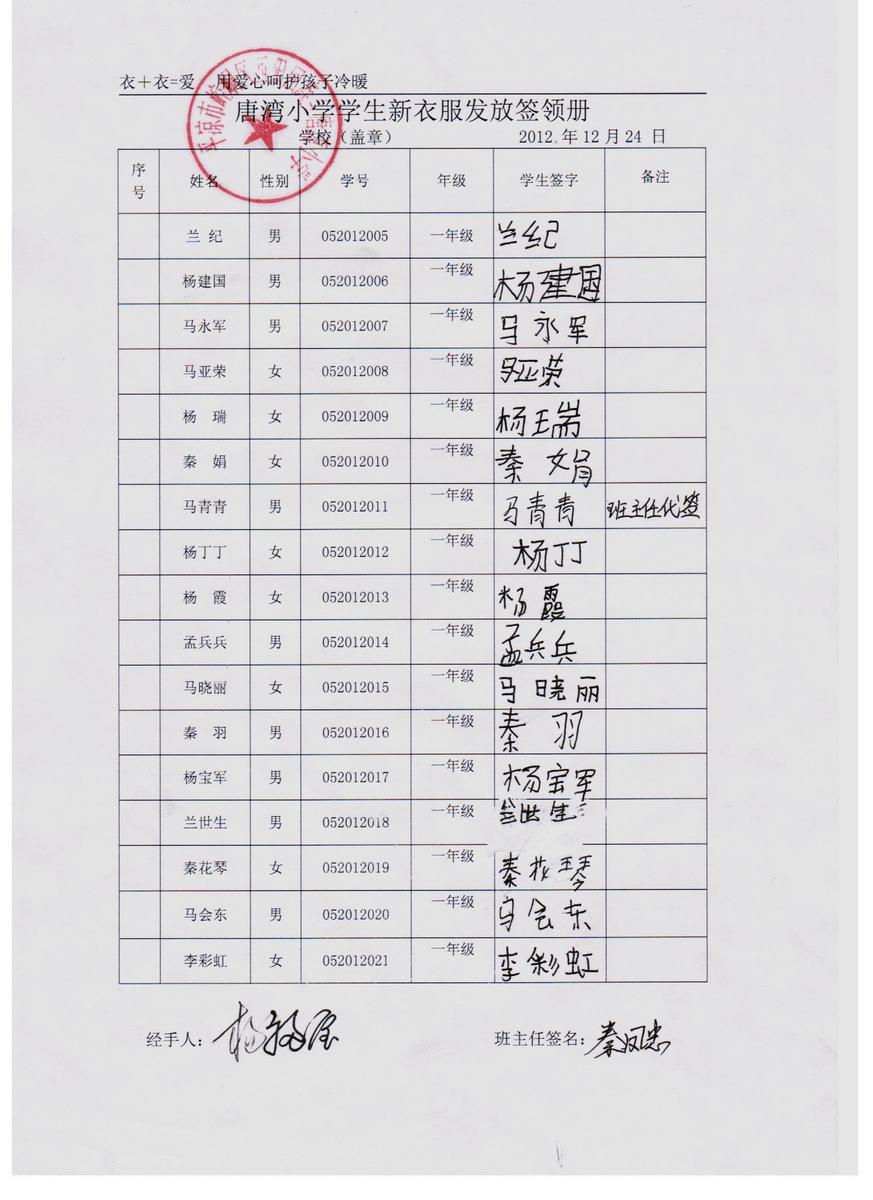 衣＋衣=爱　用爱心呵护孩子冷暖
唐湾小学学生新衣服发放签领册
学校（盖章）　2012.年12月24 日
序号 姓名 性别 学号 年级 学生签字 备注
兰 纪 男 052012005 一年级 兰纪
杨建国 男 052012006 一年级 杨建国
马永军 男 052012007 一年级 马永军
马亚荣 女 052012008 一年级 马亚荣
杨　瑞 女 052012009 一年级 杨瑞
秦　娟 女 052012010 一年级 秦娟
马青青 男 052012011 一年级 马青青 班主任代签
杨丁丁 女 052012012 一年级 杨丁丁
杨　霞 女 052012013 一年级 杨霞
孟兵兵 男 052012014 一年级 孟兵兵
马晓丽 女 052012015 一年级 马晓丽
秦　羽 男 052012016 一年级 秦羽
杨宝军 男 052012017 一年级 杨宝军
兰世生 男 052012018 一年级 兰世生
秦花琴 女 052012019 一年级 秦花琴
马会东 男 052012020 一年级 马会东
李彩虹 女 052012021 一年级 李彩虹
经手人： 班主任签名：秦凤忠